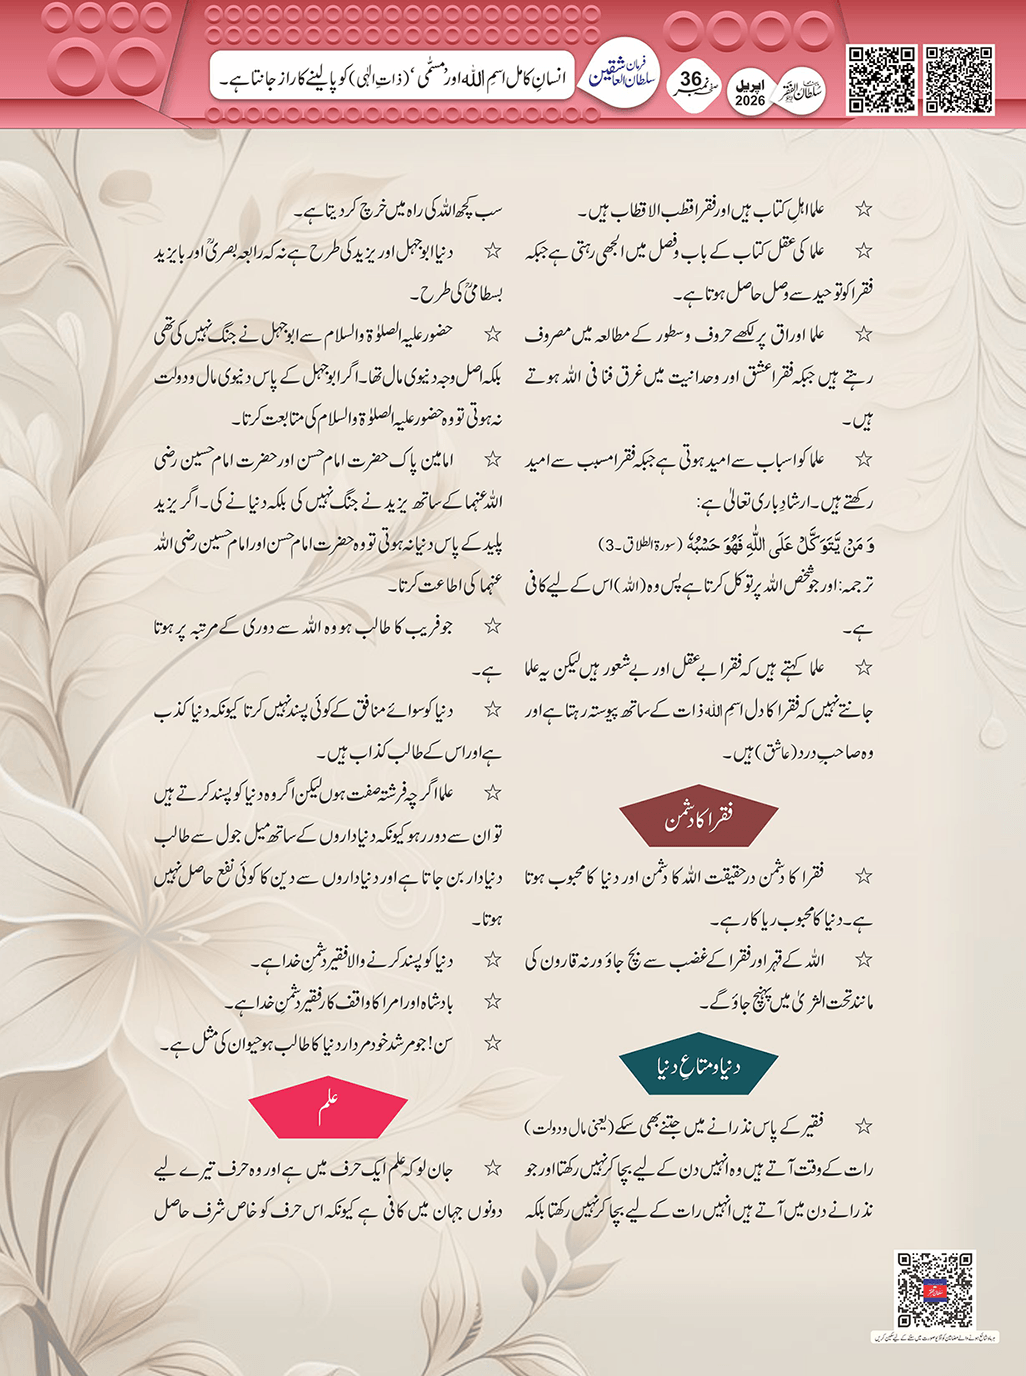 ماہنامہ سلطان الفقر لاہور
اپریل 2026
صفحہ نمبر 36
فرمان سلطان العاشقین
انسانِ کامل اسمِ اللہ اور مسمّٰی ‘(ذاتِ الٰہی) کو پا لینے کا راز جانتا ہے۔
☆ علما اہلِ کتاب ہیں اور فقرا قطب الاقطاب ہیں۔
☆ علما کی عقل کتاب کے باب و فصل میں الجھی رہتی ہے جبکہ
فقرا کو توحید سے وصل حاصل ہوتا ہے۔
☆ علما اوراق پر لکھے حروف و سطور کے مطالعہ میں مصروف
رہتے ہیں جبکہ فقرا عشق اور وحدانیت میں غرق فنا فی اللہ ہوتے
ہیں۔
☆ علما کو اسباب سے امید ہوتی ہے جبکہ فقرا مسبب سے امید
رکھتے ہیں۔ ارشادِ باری تعالیٰ ہے:
وَ مَنْ يَّتَوَكَّلْ عَلَى اللّٰهِ فَهُوَ حَسْبُهٗ (سورۃ الطلاق۔3)
ترجمہ: اور جو شخص اللہ پر توکل کرتا ہے پس وہ (اللہ) اس کے لیے کافی
ہے۔
☆ علما کہتے ہیں کہ فقرا بے عقل اور بے شعور ہیں لیکن یہ علما
جانتے نہیں کہ فقرا کا دل اسمِ اللہ ذات کے ساتھ پیوستہ رہتا ہے اور
وہ صاحبِ درد (عاشق) ہیں۔
فقرا کا دشمن
☆ فقرا کا دشمن درحقیقت اللہ کا دشمن اور دنیا کا محبوب ہوتا
ہے۔ دنیا کا محبوب ریاکار ہے۔
☆ اللہ کے قہر اور فقرا کے غضب سے بچ جاؤ ورنہ قارون کی
مانند تحت الثریٰ میں پہنچ جاؤ گے۔
دنیا و متاعِ دنیا
☆ فقیر کے پاس نذرانے میں جتنے بھی سکے (یعنی مال و دولت)
رات کے وقت آتے ہیں وہ انہیں دن کے لیے بچا کر نہیں رکھتا اور جو
نذرانے دن میں آتے ہیں انہیں رات کے لیے بچا کر نہیں رکھتا بلکہ
سب کچھ اللہ کی راہ میں خرچ کر دیتا ہے۔
☆ دنیا ابوجہل اور یزید کی طرح ہے نہ کہ رابعہ بصریؒ اور بایزید
بسطامیؒ کی طرح۔
☆ حضور علیہ الصلوٰۃ والسلام سے ابوجہل نے جنگ نہیں کی تھی
بلکہ اصل وجہ دنیوی مال تھا۔ اگر ابوجہل کے پاس دنیوی مال و دولت
نہ ہوتی تو وہ حضور علیہ الصلوٰۃ والسلام کی متابعت کرتا۔
☆ امامین پاک حضرت امام حسن اور حضرت امام حسین رضی
اللہ عنہما کے ساتھ یزید نے جنگ نہیں کی بلکہ دنیا نے کی۔ اگر یزید
پلید کے پاس دنیا نہ ہوتی تو وہ حضرت امام حسن اور امام حسین رضی اللہ
عنہما کی اطاعت کرتا۔
☆ جو فریب کا طالب ہو وہ اللہ سے دوری کے مرتبہ پر ہوتا
ہے۔
☆ دنیا کو سوائے منافق کے کوئی پسند نہیں کرتا کیونکہ دنیا کذب
ہے اور اس کے طالب کذاب ہیں۔
☆ علما اگرچہ فرشتہ صفت ہوں لیکن اگر وہ دنیا کو پسند کرتے ہیں
تو ان سے دور رہو کیونکہ دنیاداروں کے ساتھ میل جول سے طالب
دنیادار بن جاتا ہے اور دنیاداروں سے دین کا کوئی نفع حاصل نہیں
ہوتا۔
☆ دنیا کو پسند کرنے والا فقیر دشمنِ خدا ہے۔
☆ بادشاہ اور امرا کا واقف کار فقیر دشمنِ خدا ہے۔
☆ سن! جو مرشد خود مردار دنیا کا طالب ہو حیوان کی مثل ہے۔
علم
☆ جان لو کہ علم ایک حرف میں ہے اور وہ حرف تیرے لیے
دونوں جہان میں کافی ہے کیونکہ اس حرف کو خاص شرف حاصل